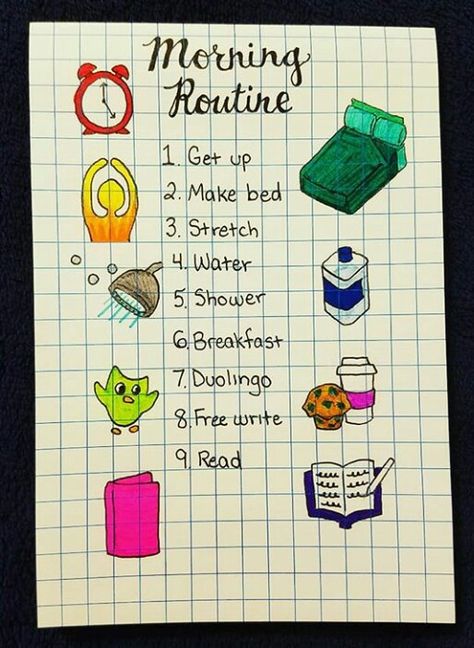 Morning
Routine
1. Get up
2. Make bed
3. Stretch
4. Water
5. Shower
6. Breakfast
7. Duolingo
8. Free write
9. Read